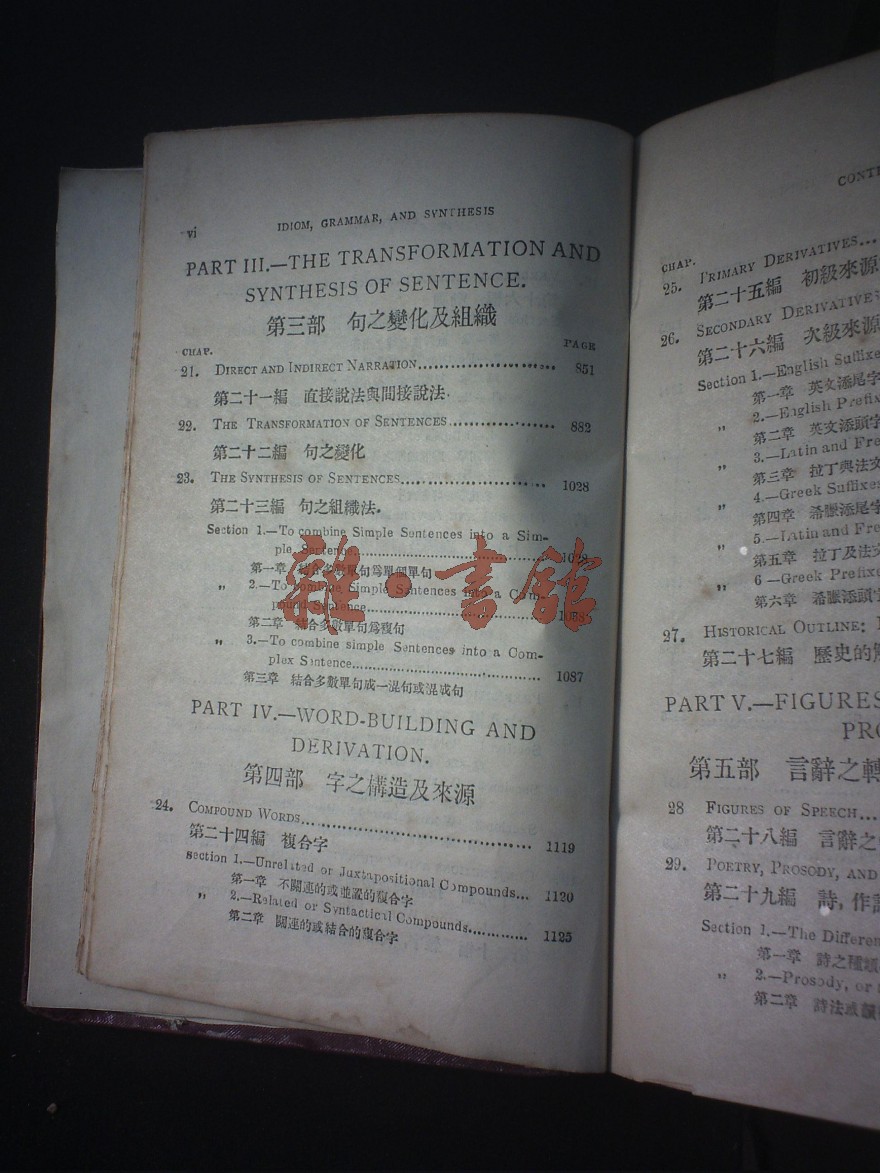 vi
IDIOM, GRAMMAR, AND SYNTHESIS
PART III.—THE TRANSFORMATION AND
SYNTHESIS OF SENTENCE.
第三部 句之變化及組織
CHAP. PAGE
21. DIRECT AND INDIRECT NARRATION 851
第二十一編 直接說法與間接說法.
22. THE TRANSFORMATION OF SENTENCES 882
第二十二編 句之變化
23. THE SYNTHESIS OF SENTENCES 1028
第二十三編 句之組織法.
Section 1.—To combine Simple Sentences into a Sim-
ple Sentence 1028
第一章 結合多數單句爲單個單句
" 2.—To combine Simple Sentences into a Com-
pound Sentence
第二章 結合多數單句爲複句
" 3.—To combine simple Sentences into a Com-
plex Sentence 1087
第三章 結合多數單句成一混句或混成句
PART IV.—WORD-BUILDING AND
DERIVATION.
第四部 字之構造及來源
24. COMPOUND WORDS 1119
第二十四編 複合字
Section 1.—Unrelated or Juxtapositional Compounds... 1120
第一章 不關連的或並置的複合字
" 2.—Related or Syntactical Compounds 1125
第二章 關連的或結合的複合字
雜·書館
CHAP.
25. PRIMARY DERIVATIVES...
第二十五編 初級來源
26. SECONDARY DERIVATIVE
第二十六編 次級來源
Section 1.—English Suffixe
第一章 英文添尾字
" 2.—English Prefix
第二章 英文添頭字
" 3.—Latin and Fre
第三章 拉丁與法文
" 4.—Greek Suffixes
第四章 希臘添尾字
" 5.—Latin and Fre
第五章 拉丁及法文
" 6—Greek Prefixe
第六章 希臘添頭
27. HISTORICAL OUTLINE:
第二十七編 歷史的
PART V.—FIGURES
PRO
第五部 言辭之轉
28 FIGURES OF SPEECH...
第二十八編 言辭之
29. POETRY, PROSODY, AND
第二十九編 詩, 作
Section 1.—The Differen
第一章 詩之種類
" 2.—Prosody, or
第二章 詩法或